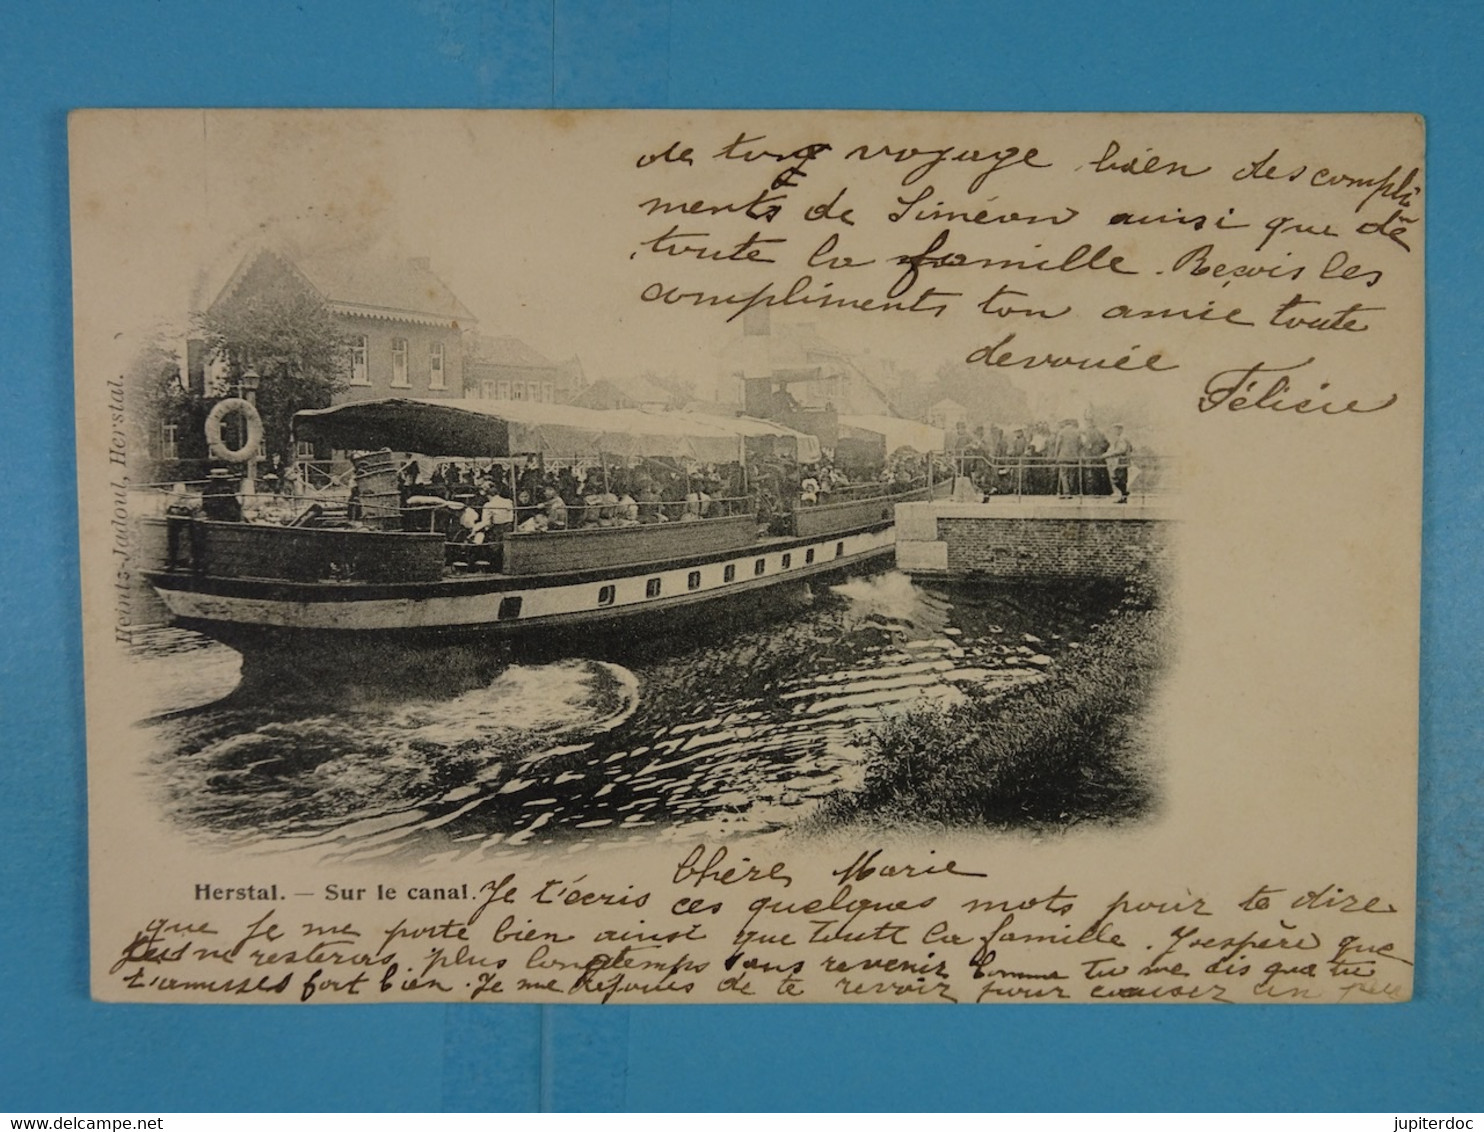 Chère Marie
Je t'écris ces quelques mots pour te dire
que je me porte bien ainsi que toute la famille. J'espère que
tu ne resteras plus longtemps sans revenir comme tu me dis que tu
t'amuses fort bien. Je me réjouis de te revoir pour causer un peu
de ton voyage bien des compli
ments de Siméon ainsi que de
toute la famille. Reçois les
compliments ton amie toute
devouée
Félisie
Herstal. — Sur le canal.
Heintz-Jadoul, Herstal.
https://www.delcampe.net
jupiterdoc